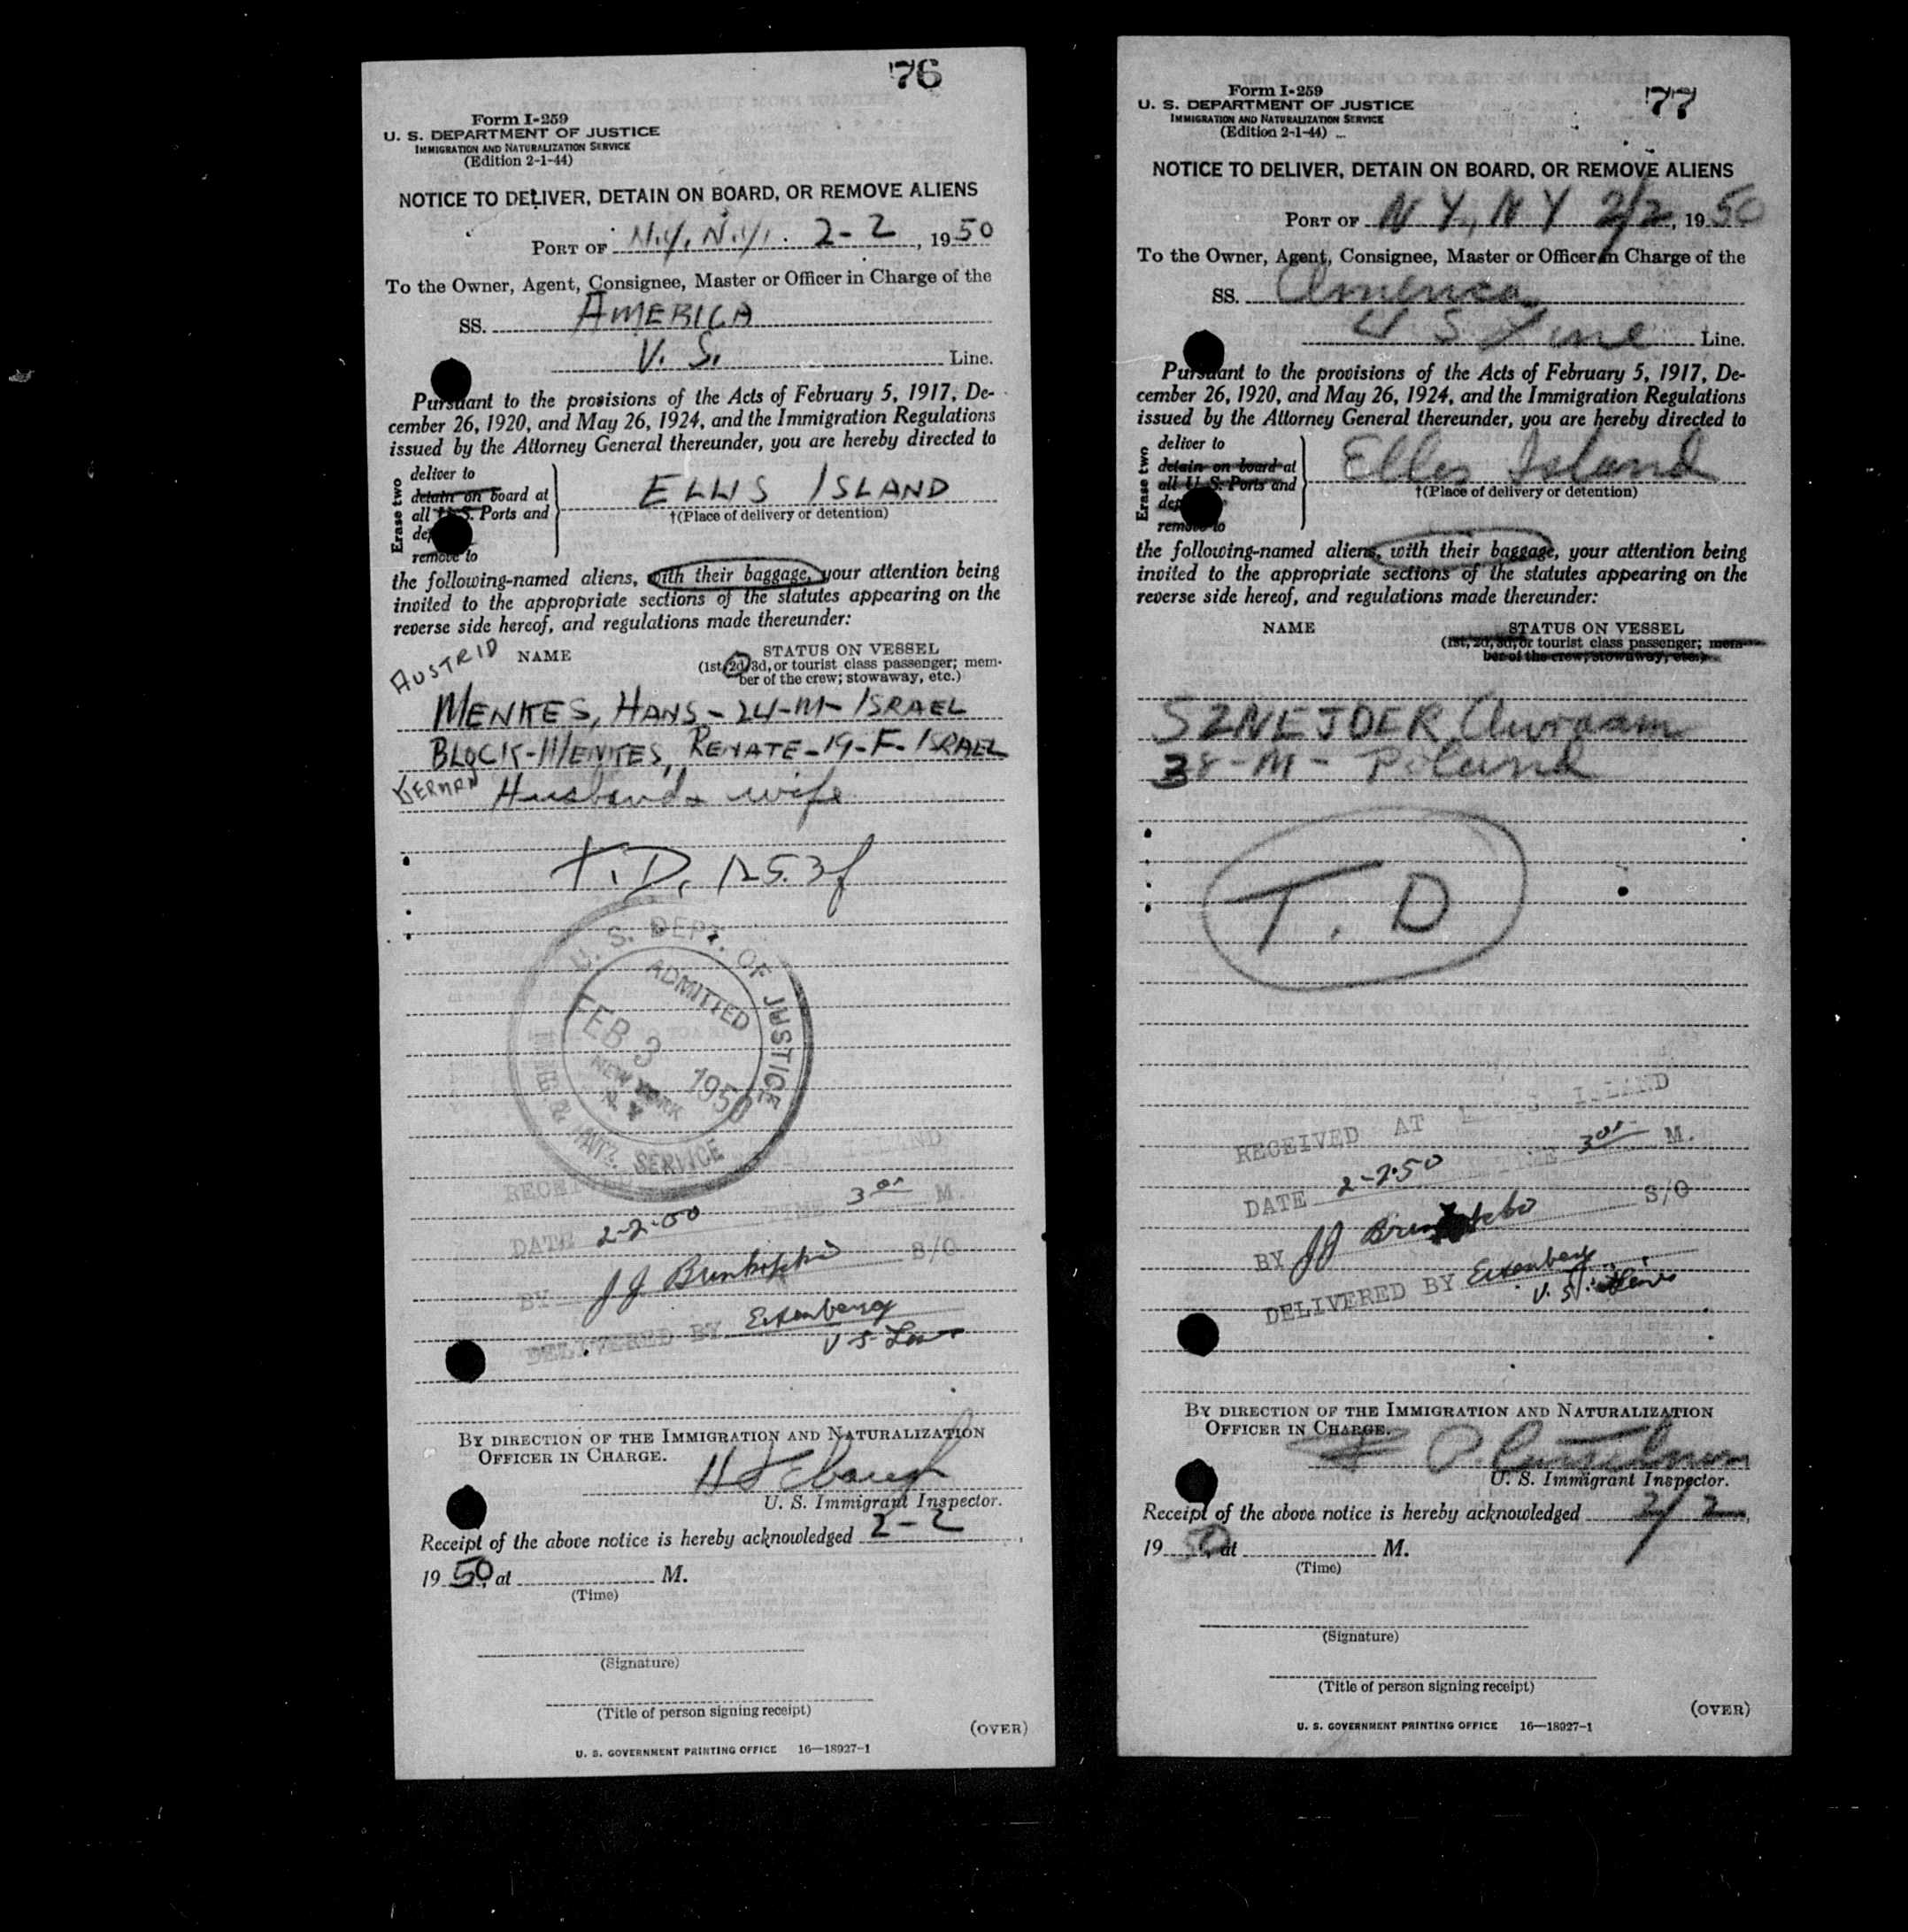 76
Form I-259
U. S. DEPARTMENT OF JUSTICE
IMMIGRATION AND NATURALIZATION SERVICE
(Edition 2-1-44)
NOTICE TO DELIVER, DETAIN ON BOARD, OR REMOVE ALIENS
PORT OF N.Y. N.Y. 2-2, 1950
To the Owner, Agent, Consignee, Master or Officer in Charge of the
SS. AMERICA
U. S. Line.
Pursuant to the provisions of the Acts of February 5, 1917, De-
cember 26, 1920, and May 26, 1924, and the Immigration Regulations
issued by the Attorney General thereunder, you are hereby directed to
Erase two
deliver to
detain on board at
all U.S. Ports and
remove to
ELLIS ISLAND
†(Place of delivery or detention)
the following-named aliens, with their baggage, your attention being
invited to the appropriate sections of the statutes appearing on the
reverse side hereof, and regulations made thereunder:
NAME
STATUS ON VESSEL
(1st, 2d, 3d, or tourist class passenger; mem-
ber of the crew; stowaway, etc.)
MENKES, HANS - 24-M- ISRAEL
BLOCK-MENKES, RENATE-19-F-ISRAEL
GERMAN Husband & wife
T.D.
U. S. DEPT. OF JUSTICE
ADMITTED
FEB 3 1950
NEW YORK
N. Y.
SERVICE
RECEIVED ISLAND
DATE 2-2-50 TIME 3 M.
BY J J S/O
DELIVERED BY Eisenberg
U S
BY DIRECTION OF THE IMMIGRATION AND NATURALIZATION
OFFICER IN CHARGE.
U. S. Immigrant Inspector.
Receipt of the above notice is hereby acknowledged 2-2,
1950, at M.
(Time)
(Signature)
(Title of person signing receipt)
(OVER)
U. S. GOVERNMENT PRINTING OFFICE 16—18927-1
77
Form I-259
U. S. DEPARTMENT OF JUSTICE
IMMIGRATION AND NATURALIZATION SERVICE
(Edition 2-1-44)
NOTICE TO DELIVER, DETAIN ON BOARD, OR REMOVE ALIENS
PORT OF N Y, N Y 2/2, 1950
To the Owner, Agent, Consignee, Master or Officer in Charge of the
SS. America
U S Line Line.
Pursuant to the provisions of the Acts of February 5, 1917, De-
cember 26, 1920, and May 26, 1924, and the Immigration Regulations
issued by the Attorney General thereunder, you are hereby directed to
Erase two
deliver to
detain on board at
all U.S. Ports and
remove to
Ellis Island
†(Place of delivery or detention)
the following-named aliens, with their baggage, your attention being
invited to the appropriate sections of the statutes appearing on the
reverse side hereof, and regulations made thereunder:
NAME
STATUS ON VESSEL
(1st, 2d, 3d, or tourist class passenger; mem-
ber of the crew, stowaway, etc.)
SZNEJDER, Avraam
38-M- Poland
T. D
RECEIVED AT ISLAND
DATE 2-2-50 TIME 3 M.
BY JJ S/O
DELIVERED BY Eisenberg
U. S.
BY DIRECTION OF THE IMMIGRATION AND NATURALIZATION
OFFICER IN CHARGE.
U. S. Immigrant Inspector.
Receipt of the above notice is hereby acknowledged 2/2,
1950, at M.
(Time)
(Signature)
(Title of person signing receipt)
(OVER)
U. S. GOVERNMENT PRINTING OFFICE 16—18927-1